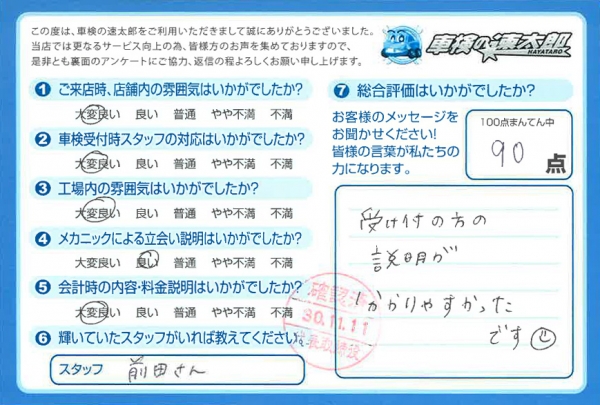 この度は、車検の速太郎をご利用いただきまして誠にありがとうございました。
当店では更なるサービス向上の為、皆様方のお声を集めておりますので、
是非とも裏面のアンケートにご協力、返信の程よろしくお願い申し上げます。
車検の速太郎
HAYATARO
1 ご来店時、店舗内の雰囲気はいかがでしたか?
大変良い 良い 普通 やや不満 不満
2 車検受付時スタッフの対応はいかがでしたか?
大変良い 良い 普通 やや不満 不満
3 工場内の雰囲気はいかがでしたか?
大変良い 良い 普通 やや不満 不満
4 メカニックによる立会い説明はいかがでしたか?
大変良い 良い 普通 やや不満 不満
5 会計時の内容・料金説明はいかがでしたか?
大変良い 良い 普通 やや不満 不満
6 輝いていたスタッフがいれば教えてください。
スタッフ 前田さん
7 総合評価はいかがでしたか?
お客様のメッセージを
お聞かせください!
皆様の言葉が私たちの
力になります。
100点まんてん中
90 点
受け付の方の
説明が
わかりやすかった
です
確認済
30.11.11
取締役